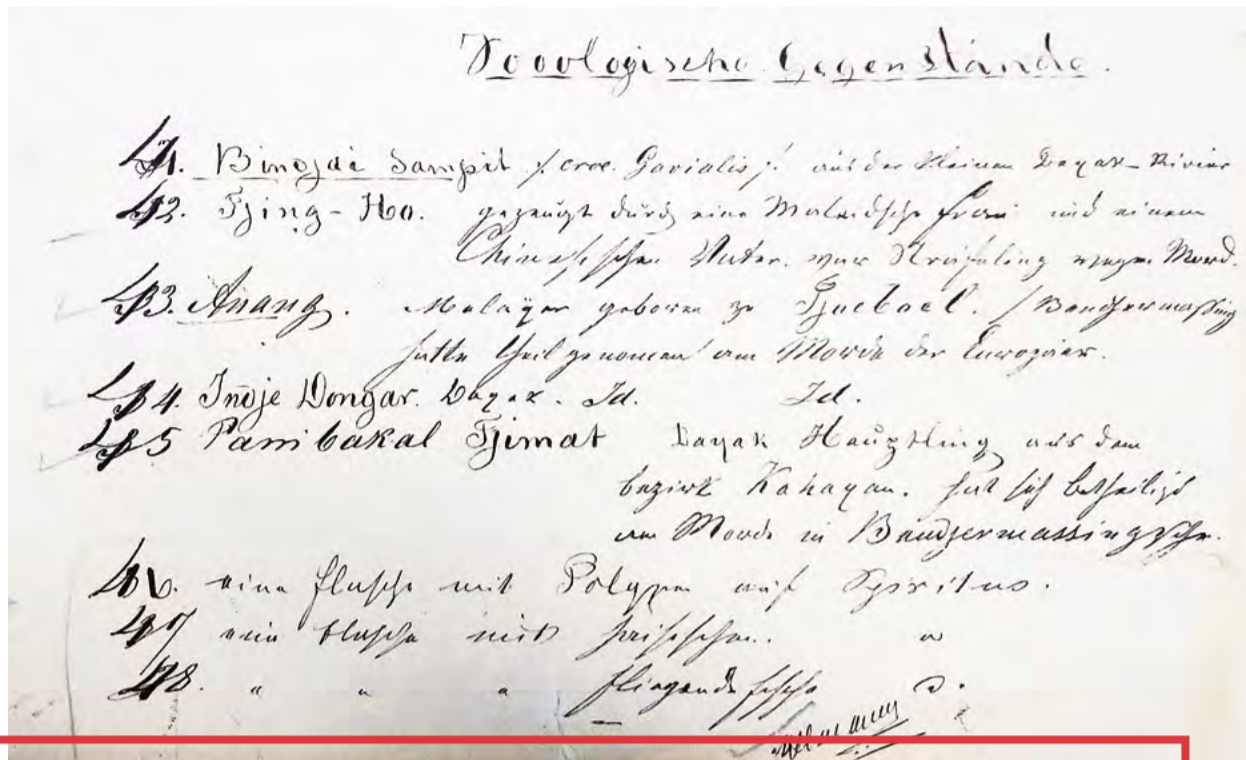 Zoologische Gegenstände.
41. Binojai Sampit /: croc. Gavialis :/ aus der kleinen Dayak-Rivier
42. Tjing-Ho. gezeugt durch eine Maleidsche Frau und einem
Chinesischen Vater. war Sträfling wegen Mord.
43. Anang. Malayer geboren zu /Bandjermassing
hatte theil genomen am Morde der Europäer.
44. Indje Dongar. Dayak. Id. Id.
45 Pambakal Tjimat Dayak Häuptling aus dem
bezirk Kahayan. hat sich betheiligt
am Morde in
46. eine flasche mit Polypen auf Spiritus.
47 ein flasche mit "
48. " " " fliegende fische "